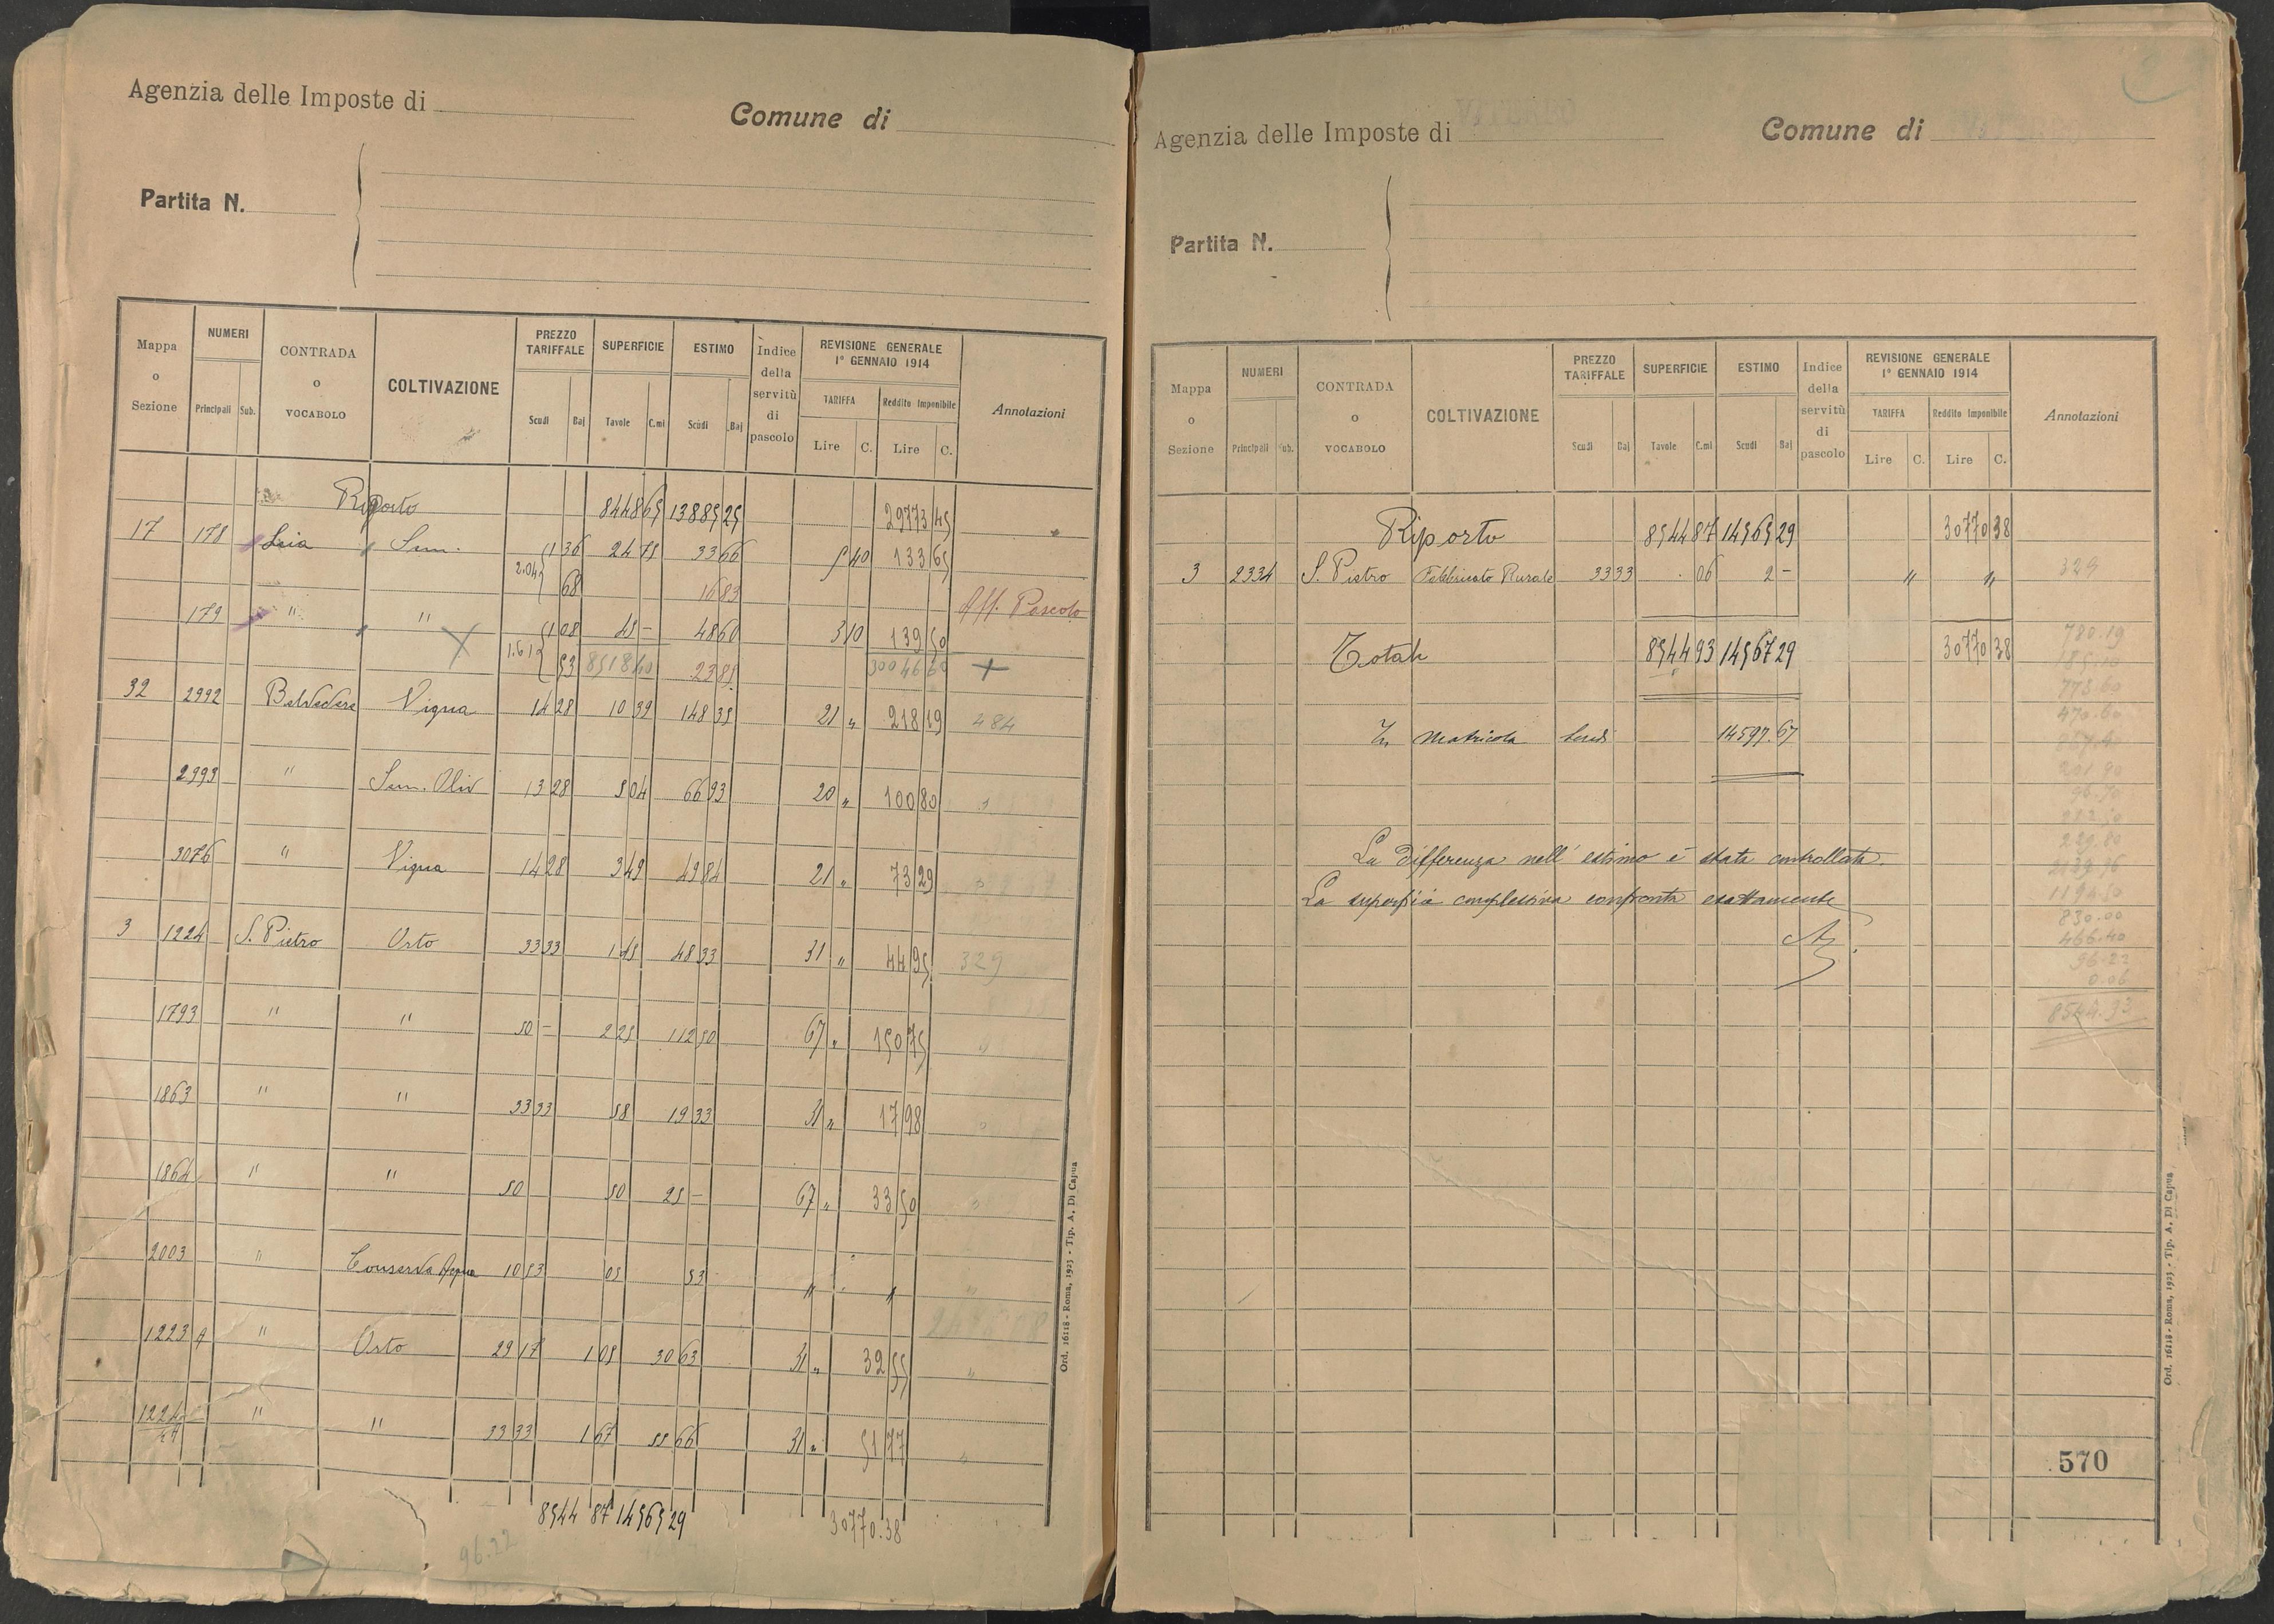 Agenzia delle Imposte di
Comune di
Partita N.
Mappa o Sezione
NUMERI
Principali Sub.
CONTRADA o VOCABOLO
COLTIVAZIONE
PREZZO TARIFFALE
Scudi Baj
SUPERFICIE
Tavole C.mi
ESTIMO
Scudi Baj
Indice della servitù di pascolo
REVISIONE GENERALE 1° GENNAIO 1914
TARIFFA
Lire C.
Reddito Imponibile
Lire C.
Annotazioni
Riporto 8448 65 13885 25 29773 45
17 178 Leia Sem. 1 36 24 75 33 66 5 40 133 65
2.04 68 16 83
179 " " 1 08 45 - 48 60 3 10 139 50 Aff. Pascolo
1.61 53 8518 40 23 85 30046 60 +
32 2992 Belvedere Vigna 14 28 10 39 148 35 21 " 218 19 484
2993 " Sem. Oliv 13 28 5 04 66 93 20 " 100 80 "
3076 " Vigna 14 28 3 49 49 84 21 " 73 29 "
3 1224 S. Pietro Orto 33 33 1 45 48 33 31 " 44 95 329
1793 " " 50 - 2 25 112 50 67 " 150 75 "
1863 " " 33 33 58 19 33 31 " 17 98 "
1864 " " 50 50 25 - 67 " 33 50 "
2003 " Conserva Acqua 10 53 05 53 " " "
1223 A " Orto 29 17 1 05 30 63 31 " 32 55 "
1224 " " 33 33 1 67 55 66 31 " 51 77 "
8544 87 14565 29 30770.38
96.22
Ord. 16118 - Roma, 1923 - Tip. A. Di Capua
Agenzia delle Imposte di
Comune di
Partita N.
Mappa o Sezione
NUMERI
Principali Sub.
CONTRADA o VOCABOLO
COLTIVAZIONE
PREZZO TARIFFALE
Scudi Baj
SUPERFICIE
Tavole C.mi
ESTIMO
Scudi Baj
Indice della servitù di pascolo
REVISIONE GENERALE 1° GENNAIO 1914
TARIFFA
Lire C.
Reddito Imponibile
Lire C.
Annotazioni
Riporto 8544 87 14565 29 30770 38
3 2334 S. Pietro Fabbricato Rurale 33 33 . 06 2 - " " 329
Totale 8544 93 14567 29 30770 38
In Matricola Scudi 14597.67
La differenza nell'estimo è stata controllata.
La superficie complessiva confronta esattamente
780.19
773.60
470.60
201.90
229.80
1194.50
830.00
466.40
96.22
0.06
8544.93
570
Ord. 16118 - Roma, 1923 - Tip. A. Di Capua